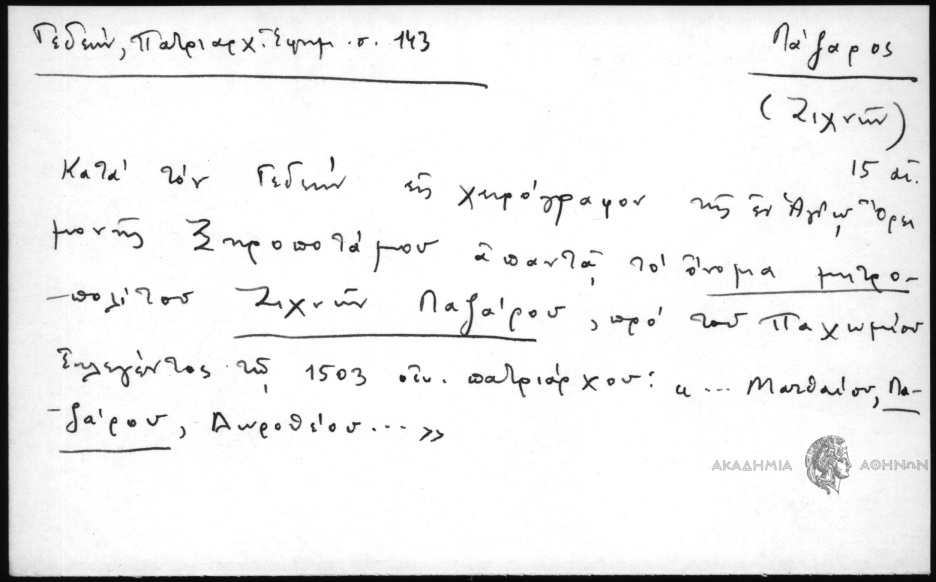 Γεδεών, Πατριαρχ. Ἐφημ. σ. 143
Λάζαρος
(Ζιχνῶν)
15 αἰ.
Κατά τόν Γεδεών εἰς χειρόγραφον τῆς ἐν Ἁγίῳ Ὄρει
μονῆς Ξηροποτάμου ἀπαντᾷ τό ὄνομα μητρο-
-πολίτου Ζιχνῶν Λαζάρου, πρό τοῦ Παχωμίου
ἐκλεγέντος τῷ 1503 οἰκ. πατριάρχου: « ... Ματθαίου, Λα-
-ζάρου, Δωροθέου ... »
ΑΚΑΔΗΜΙΑ ΑΘΗΝΩΝ